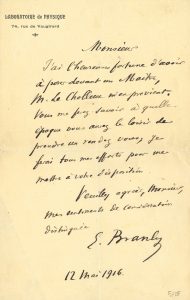 LABORATOIRE DE PHYSIQUE
74, rue de Vaugirard
Monsieur
J'ai l'heureuse fortune d'avoir
à poser devant un Maître,
M. Le Cholleux m'en prévient.
Vous me ferez savoir à quelle
époque vous aurez le loisir de
prendre un rendez vous, je
ferai tous mes efforts pour me
mettre à votre disposition.
Veuillez agréer, Monsieur,
mes sentiments de considération
distinguée
E. Branly
12 Mai 1916.